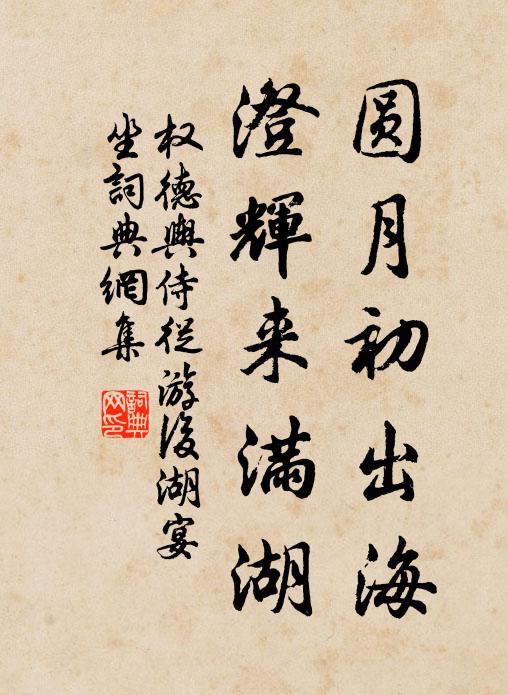 圆月初出海
澄輝来满湖
权德輿侍從游後湖宴
坐詞典網集
詞典网印